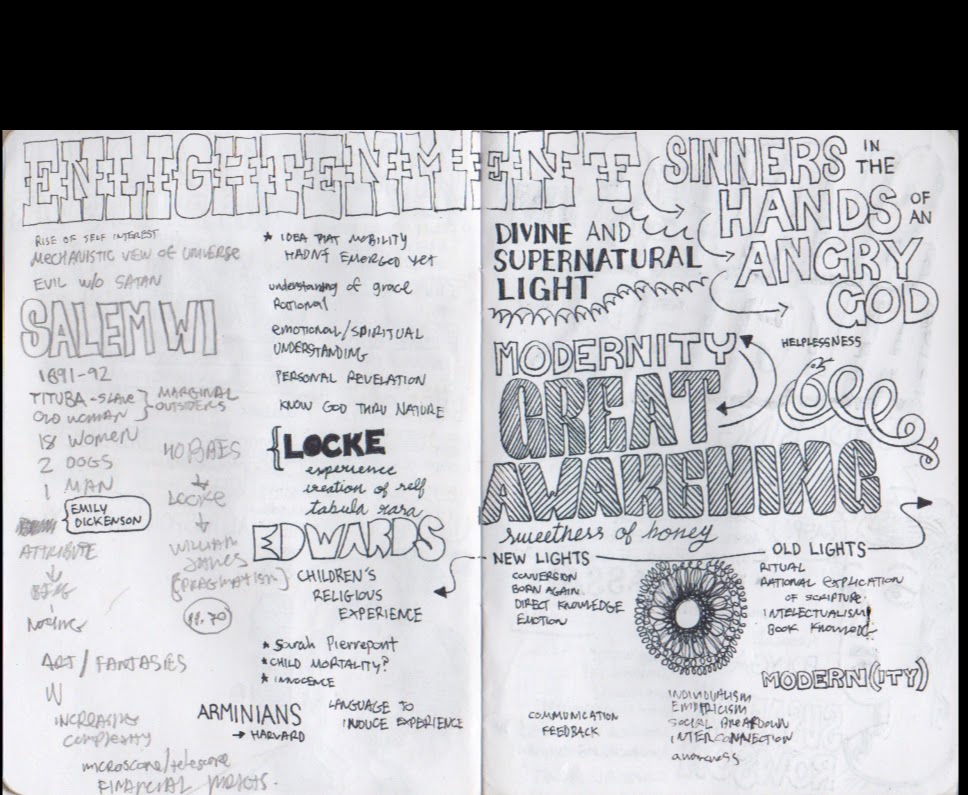 ENLIGHTENMENT
RISE OF SELF INTEREST
MECHANISTIC VIEW OF UNIVERSE
EVIL W/O SATAN
SALEM WI
1691-92
TITUBA - SLAVE
OLD WOMAN
MARGINAL
OUTSIDERS
18 WOMEN
2 DOGS
1 MAN
EMILY
DICKENSON
ATTRIBUTE
ART / FANTASIES
W
INCREASING
COMPLEXITY
microscope/telescope
FINANCIAL
HOBBES
LOCKE
WILLIAM
JAMES
[PRAGMATISM]
* IDEA THAT MOBILITY
HADNT EMERGED YET
understanding of grace
Rational
EMOTIONAL/SPIRITUAL
UNDERSTANDING
PERSONAL REVELATION
KNOW GOD THRU NATURE
{LOCKE
experience
creation of self
tabula rara
EDWARDS
CHILDREN'S
RELIGIOUS
EXPERIENCE
* Sarah Pierrepont
* CHILD MORTALITY?
* INNOCENCE
ARMINIANS
→ HARVARD
LANGUAGE TO
INDUCE EXPERIENCE
SINNERS IN
THE
HANDS OF
AN
ANGRY
GOD
DIVINE AND
SUPERNATURAL
LIGHT
HELPLESSNESS
MODERNITY
GREAT
AWAKENING
sweetness of honey
NEW LIGHTS
CONVERSION
BORN AGAIN
DIRECT KNOWLEDGE
EMOTION
OLD LIGHTS
RITUAL
RATIONAL EXPLICATION
OF SCRIPTURE
INTELECTUALISM
BOOK
MODERN(ITY)
INDIVIDUALISM
EMPIRICISM
SOCIAL BREAKDOWN
INTERCONNECTION
COMMUNICATION
FEEDBACK